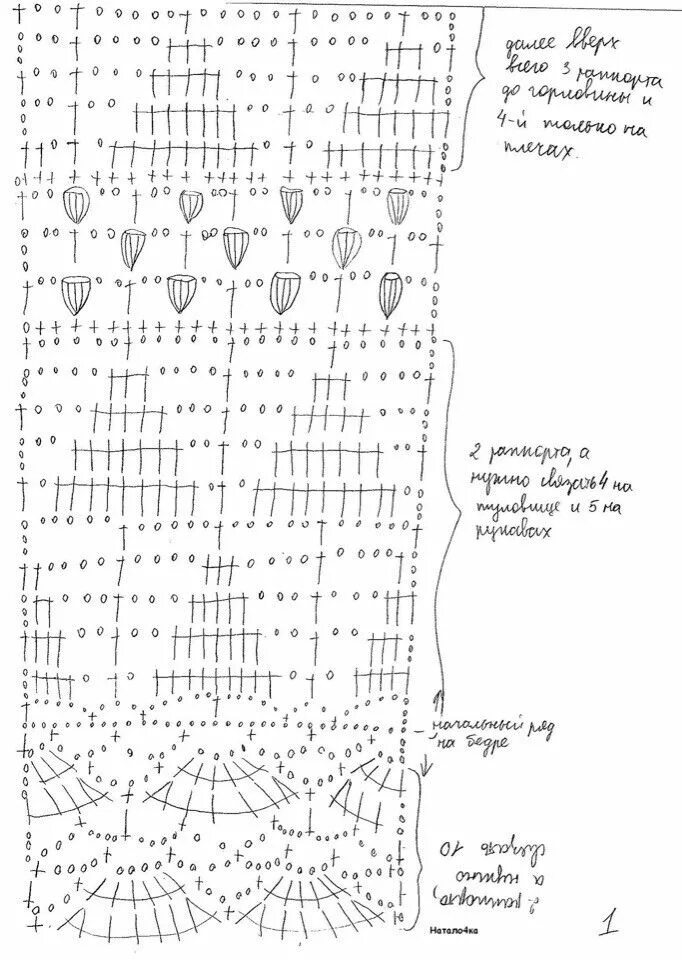 далее вверх
всего 3 раппорта
до горловины и
4-й только на
плечах.
2 раппорта, а
нужно связать 4 на
туловище и 5 на
рукавах
начальный ряд
на бедре
2 раппорта,
а нужно
связать 10
Натало4ка
1